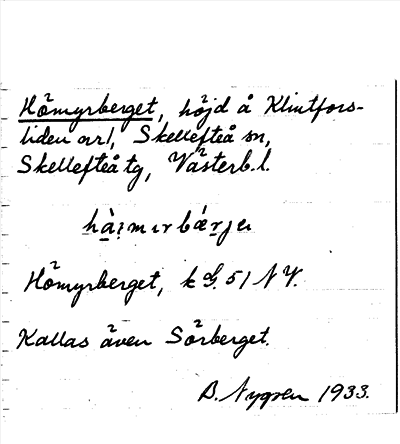 Hömyrberget, höjd å Klintfors-
liden nr 1, Skellefteå sn,
Skellefteå tg, Västerb. l.
Hömyrberget, k bl. 51 NV.
Kallas även Sörberget.
B. Nygren 1933.